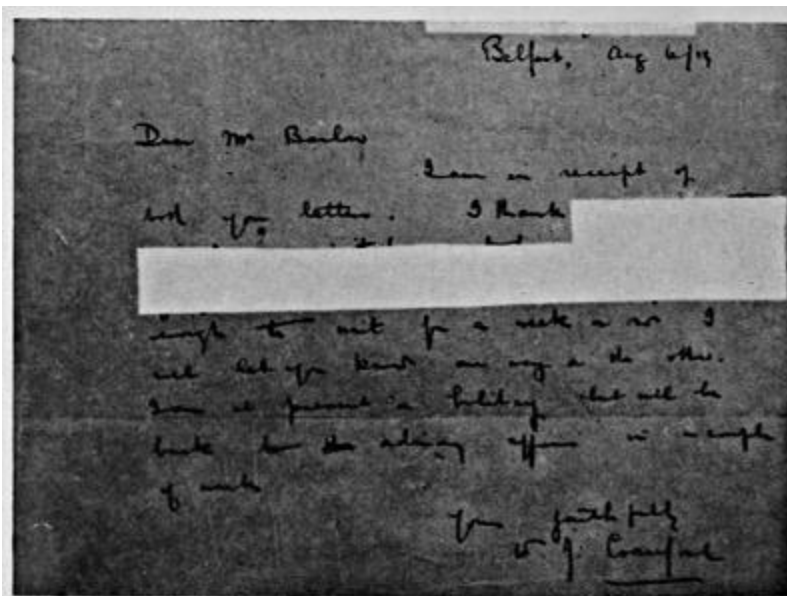 Belfast, Aug 6/19
Dear Mr Barlow
I am in receipt of
both your letters. I thank
enough to wait for a week or so I
will let you know one way or the other.
I am at present on holiday but will be
back in a couple
of weeks
Yours faithfully
W J Crawford